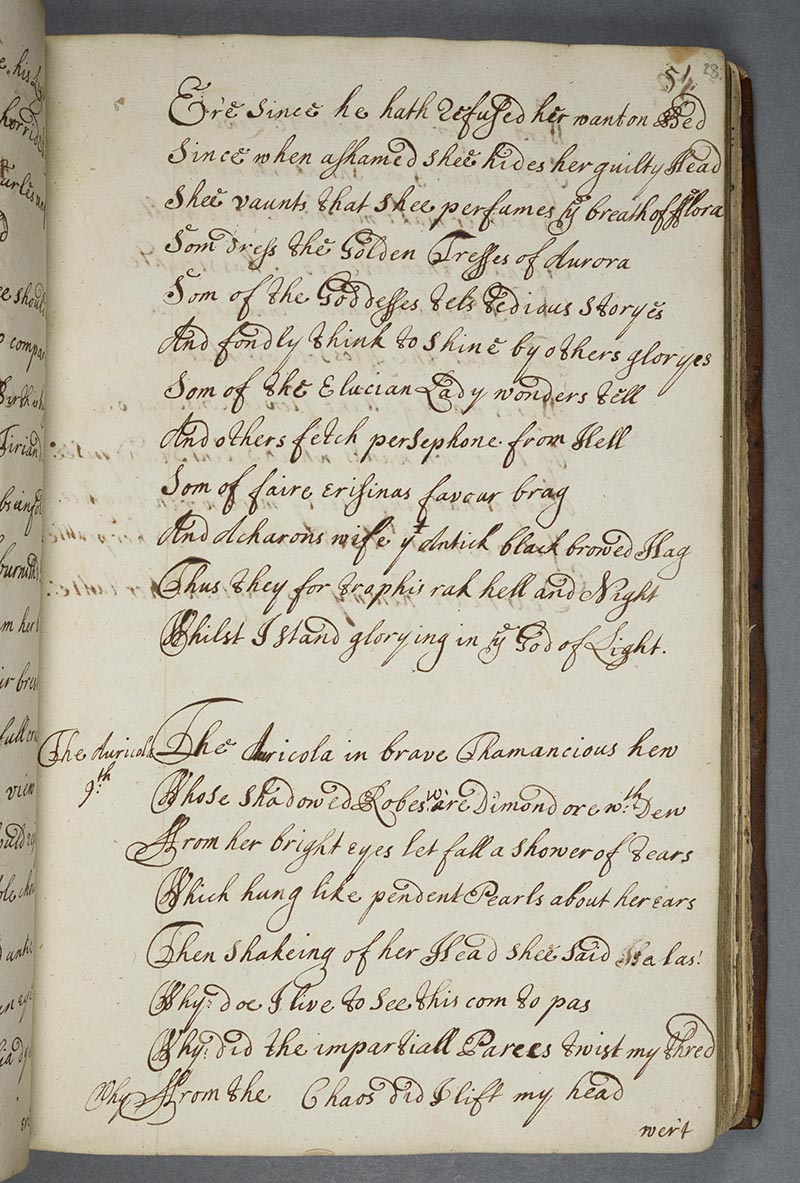 51
28
Ere since he hath Refused her wanton Bed
Since when ashamed shee hides her guilty Head
Shee vaunts that shee perfumes yͤ breath of fflora
Som dress the Golden Tresses of Aurora
Som of the Goddesses tels tedious storyes
And fondly think to shine by others gloryes
Som of the Elucian Lady wonders tell
And others fetch persephone from Hell
Som of faire erisinas favour brag
And Acharons wife yͭ Antick black browed Hag
Thus they for trophis rak hell and Night
Whilst I stand glorying in yͤ God of Light.
The Auricola
9:th
The Auricola in brave Thamancious hew
Whose shadowed Robes were Dimond ore wth: Dew
ffrom her bright eyes let fall a shower of tears
Which hung like pendent Pearls about her ears
Then shakeing of her Head shee said alas!
Why: doe I live to see this com to pas
Why: did the impartiall Parces twist my thred
Why ffrom the Chaos did I lift my head
wer't